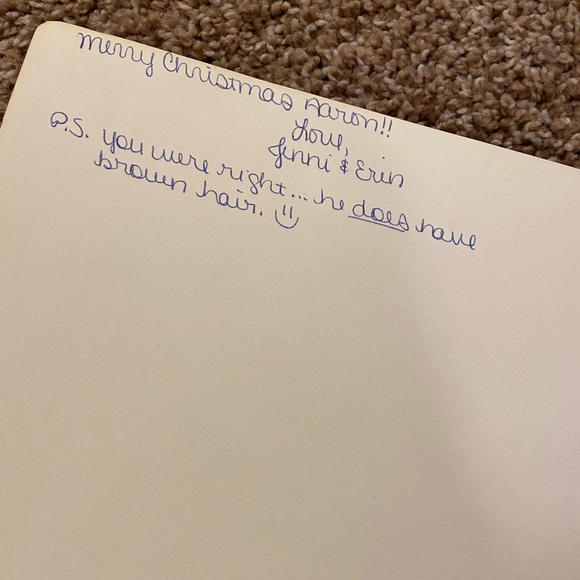 Merry Christmas Aaron!!
Love,
Jenni & Erin
P.S. you were right... he does have
brown hair.